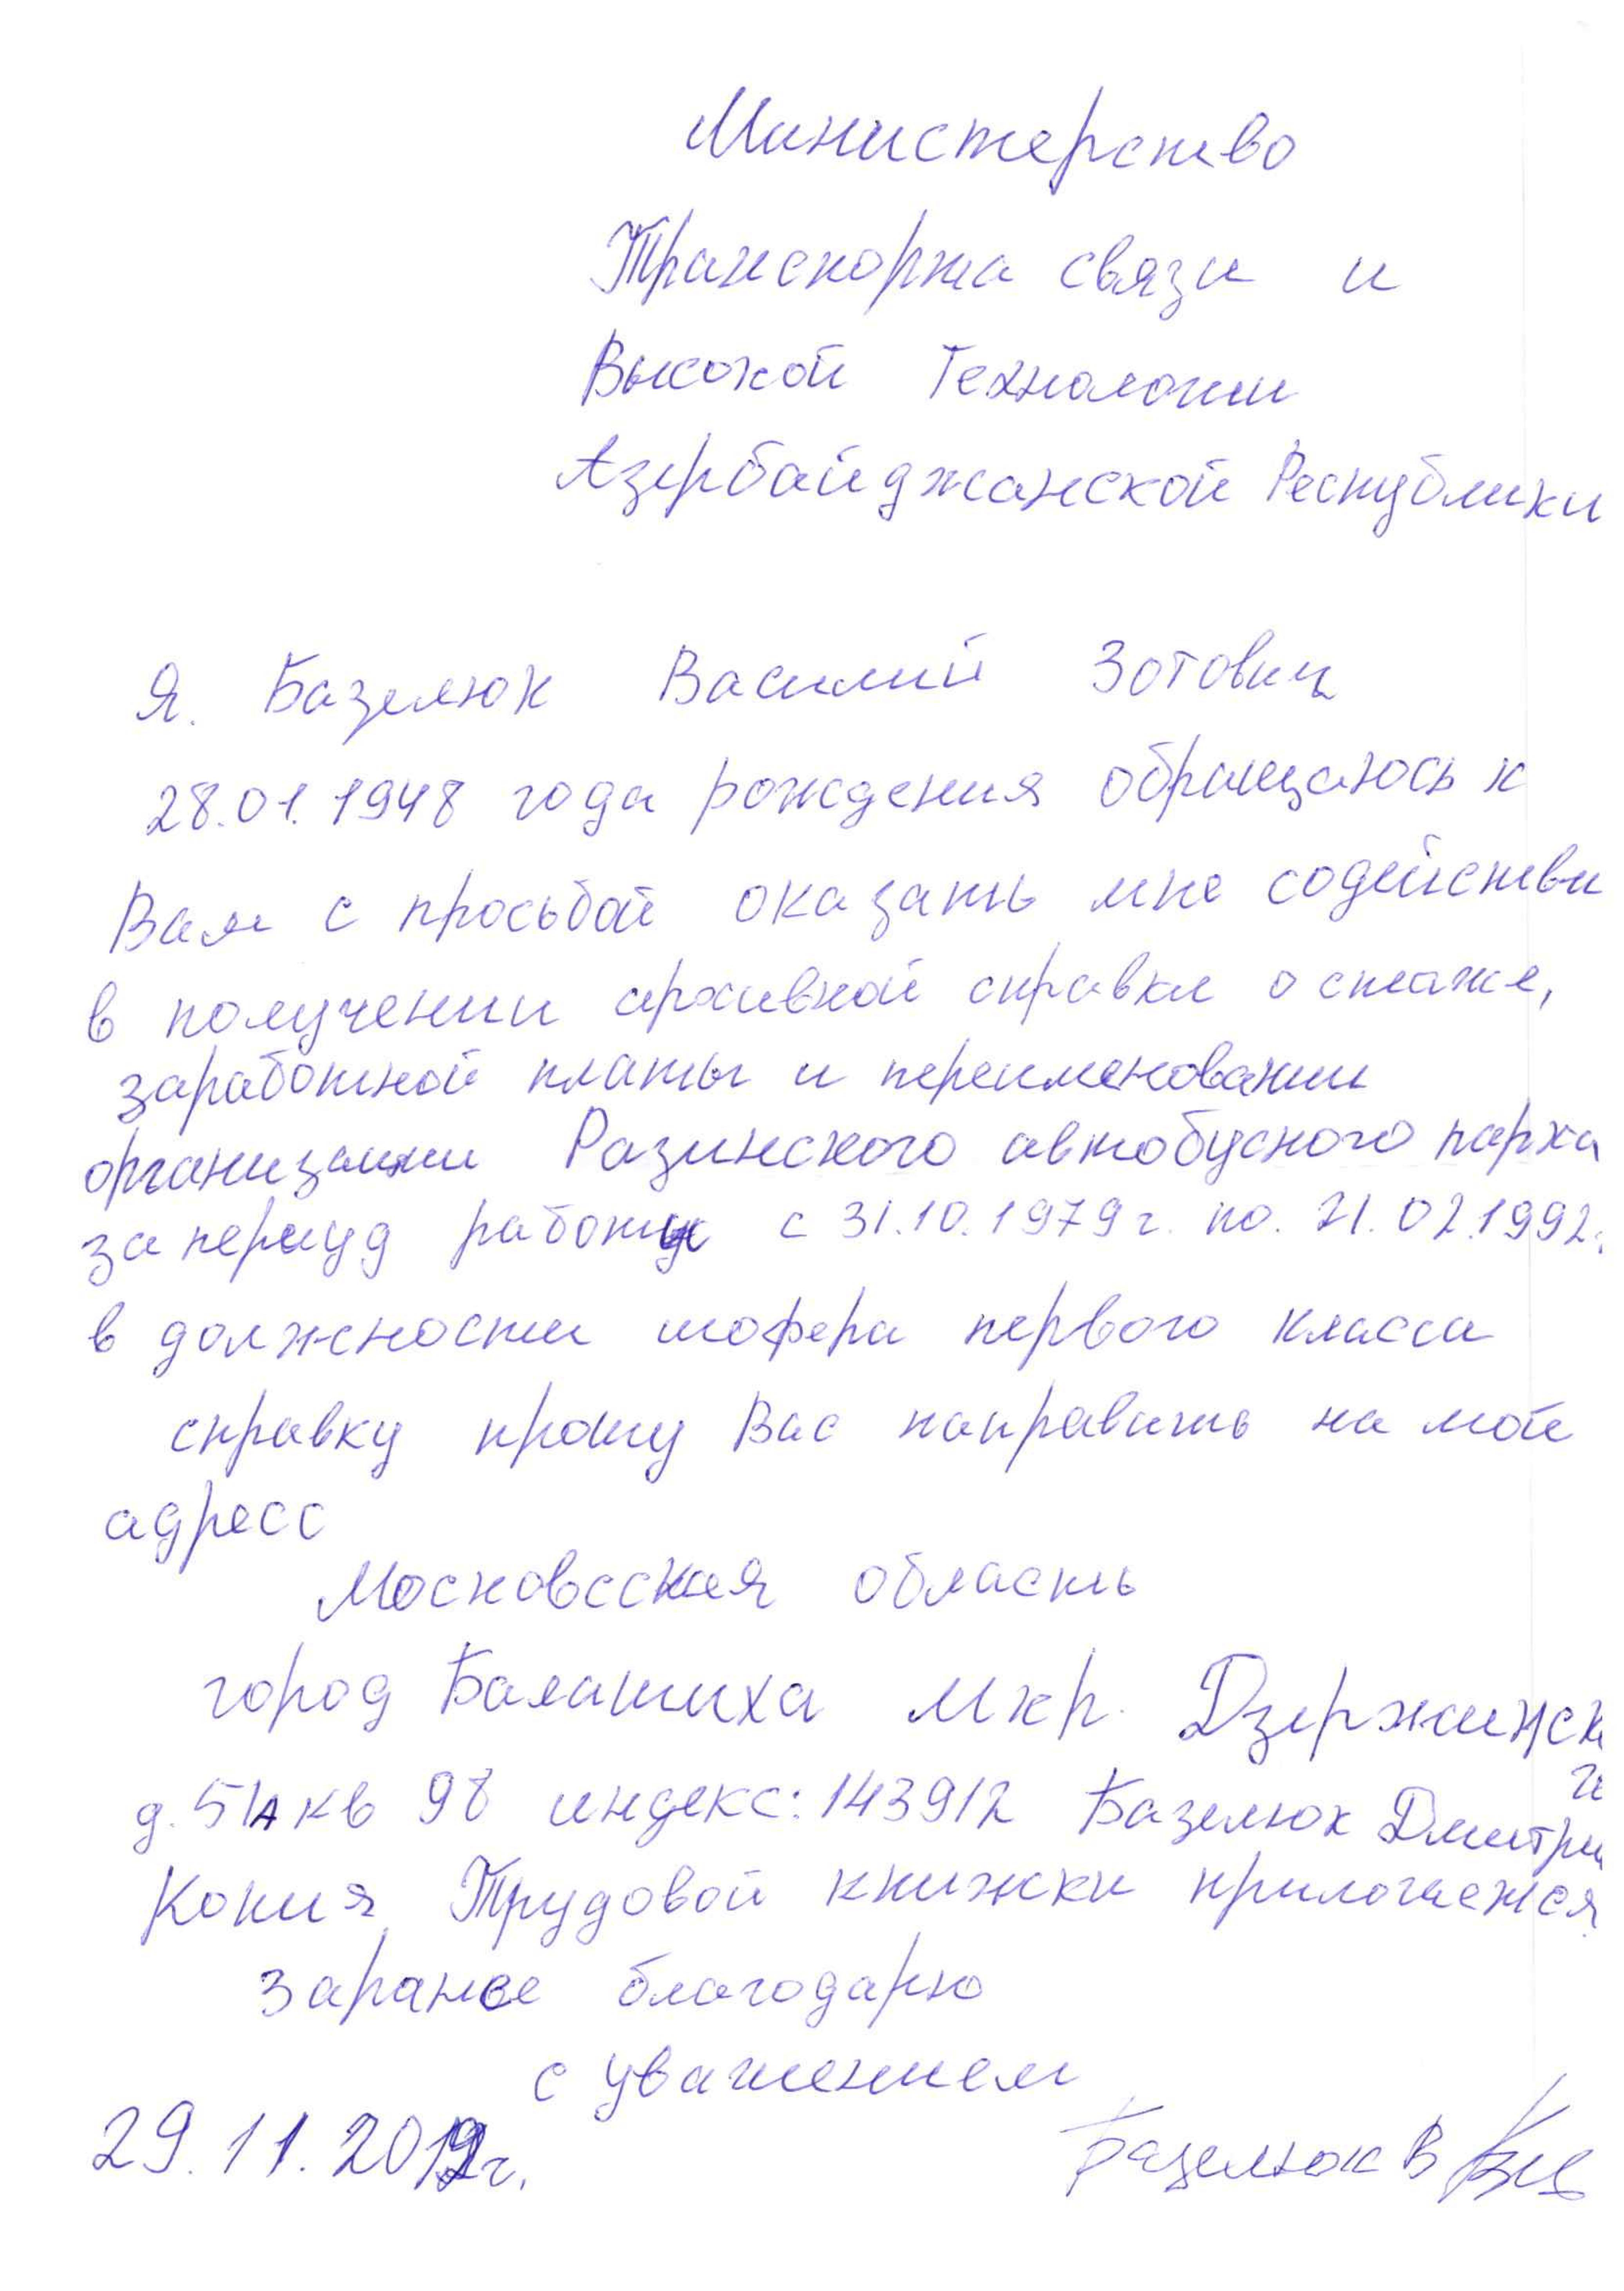 Министерство
Транспорта связи и
Высокой Технологии
Азербайджанской Республики
Я. Базелюк Василий Зотович
28.01.1948 года рождения обращаюсь к
Вам с просьбой оказать мне содействи
в получении архивной справки о стаже,
заработной платы и переименовании
организации Разинского автобусного парка
за период работы с 31.10.1979 г. по. 21.02.1992г
в должности шофера первого класса
справку прошу Вас направить на мой
адресс
Московсская область
город Балашиха Мкр. Дзержинск
го
д. 51А кв 98 индекс: 143912 Базелюк Дмитри
Копия Трудовой книжки прилогается
Заранее благодарю
с уважением
29.11.2019г. Базелюк В